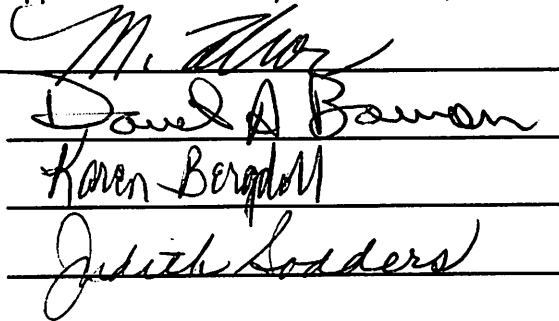 M.
David A Bowman
Karen Bergdoll
Judith Sodders